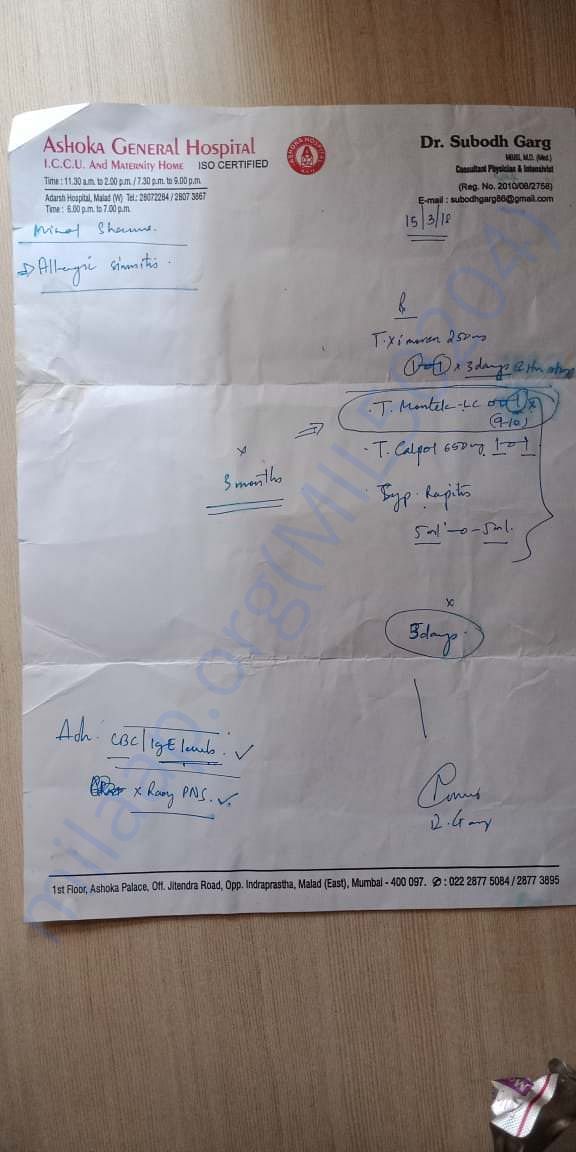 ASHOKA GENERAL HOSPITAL
I.C.C.U. AND MATERNITY HOME ISO CERTIFIED
Time : 11.30 a.m. to 2.00 p.m. / 7.30 p.m. to 9.00 p.m.
Adarsh Hospital, Malad (W) Tel.: 28072284 / 2807 3867
Time : 6.00 p.m. to 7.00 p.m.
ASHOKA HOSPITAL
Dr. Subodh Garg
MBBS, M.D. (Med.)
Consultant Physician & Intensivist
(Reg. No. 2010/08/2758)
E-mail : subodhgarg86@gmail.com
15/3/18
Allergic sinusitis.
T. 250mg
x 3days
T. Montek-LC
(9-10)
x
3 months
T. Calpol 650mg 1-0-1
Syp.
5ml-0-5ml.
x
3days.
Adv. CBC/IgE levels.
X Ray PNS.
Dr. Garg
1st Floor, Ashoka Palace, Off. Jitendra Road, Opp. Indraprastha, Malad (East), Mumbai - 400 097. : 022 2877 5084 / 2877 3895
milaap.org(MILDC204)